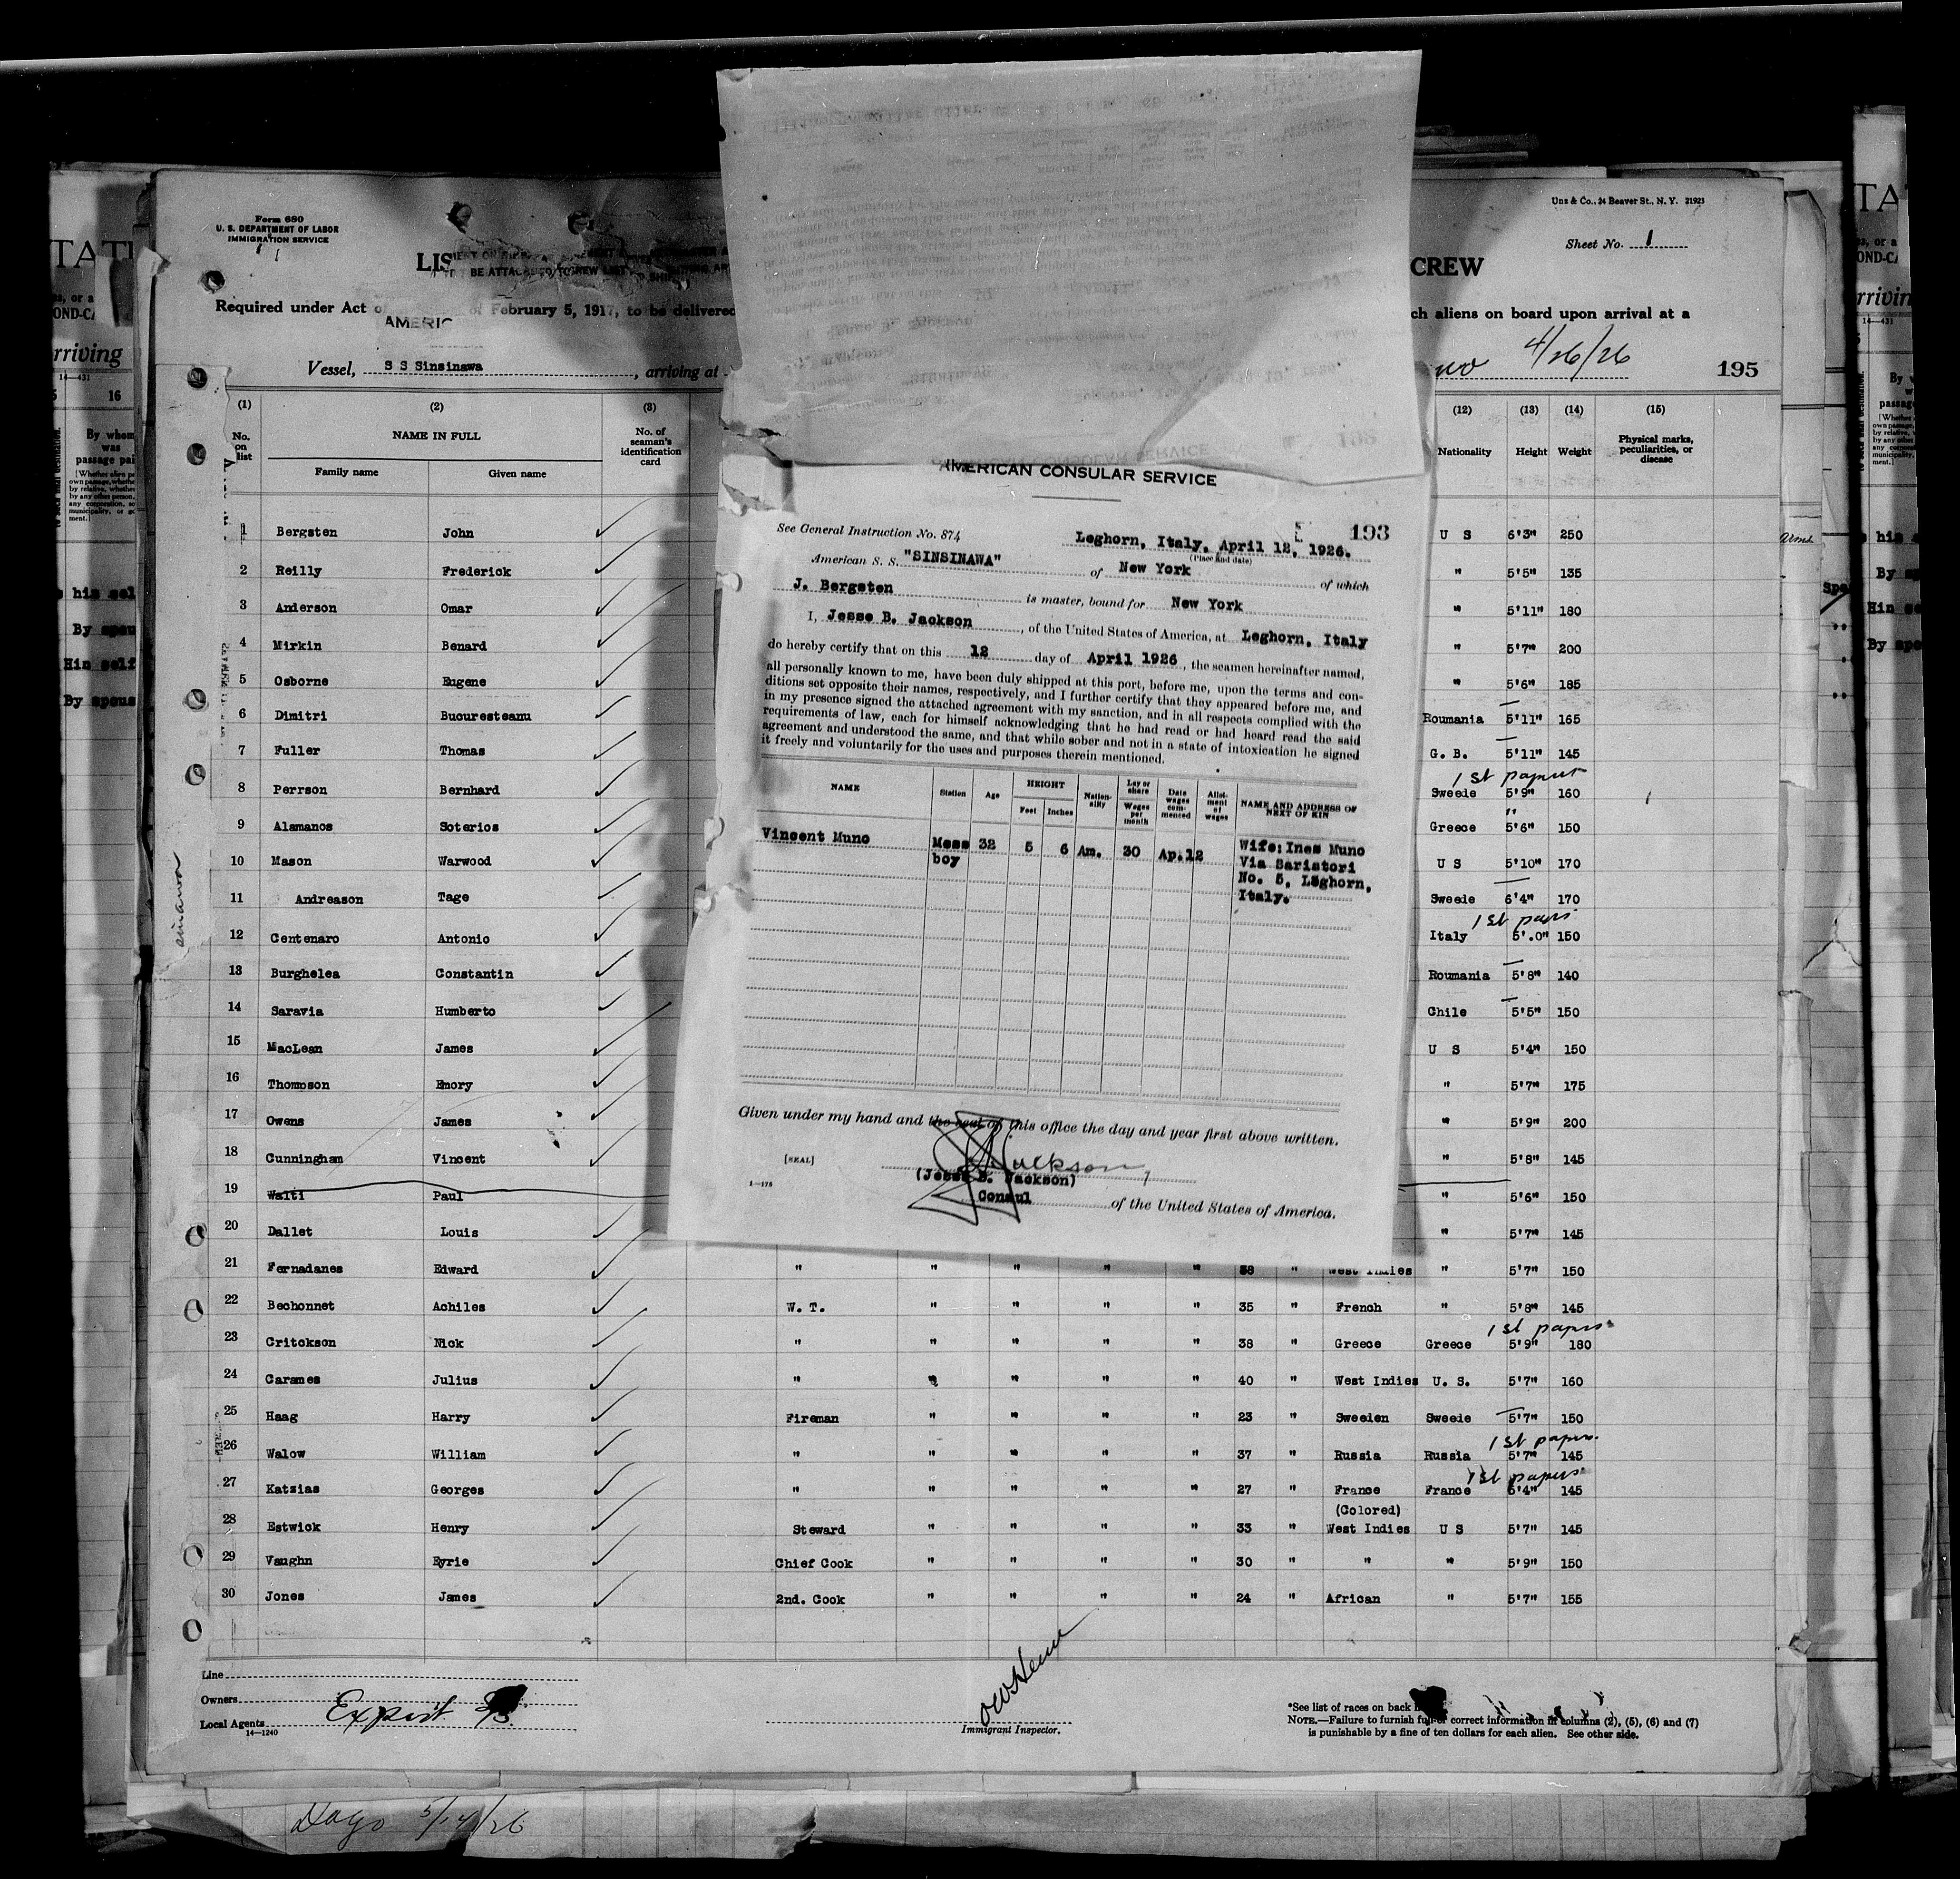 Form 680
U. S. DEPARTMENT OF LABOR
IMMIGRATION SERVICE
Unz & Co., 24 Beaver St., N. Y. 21923
Sheet No. 1
LIS CREW
BE ATTACHED TO CREW LIST
Required under Act of February 5, 1917, to be delivered ch aliens on board upon arrival at a
AMERIC
Vessel, S S Sinsinawa, arriving at 4/26/26 195
(1) (2) (3) (12) (13) (14) (15)
No. on list NAME IN FULL No. of seaman's identification card Nationality Height Weight Physical marks, peculiarities, or disease
Family name Given name
1 Bergsten John U S 6'3" 250
2 Reilly Frederick " 5'5" 135
3 Anderson Omar " 5'11" 180
4 Mirkin Benard " 5'7" 200
5 Osborne Eugene " 5'6" 185
6 Dimitri Bucuresteanu Roumania 5'11" 165
7 Fuller Thomas G. B. 5'11" 145
1st papers
8 Perrson Bernhard Sweede 5'9" 160
"
9 Alamanos Soterios Greece 5'6" 150
10 Mason Warwood U S 5'10" 170
11 Andreason Tage Sweede 6'4" 170
1st papers
12 Centenaro Antonio Italy 5'.0" 150
13 Burghelea Constantin Roumania 5'8" 140
14 Saravia Humberto Chile 5'5" 150
15 MacLean James U S 5'4" 150
16 Thompson Emory " 5'7" 175
17 Owens James " 5'9" 200
18 Cunningham Vincent " 5'8" 145
19 Walti Paul " 5'6" 150
20 Dallet Louis " 5'7" 145
21 Fernadanes Edward " " " " " 38 " West Indies " 5'7" 150
22 Bechonnet Achiles W. T. " " " " 35 " French " 5'8" 145
1st papers
23 Critckson Nick " " " " " 38 " Greece Greece 5'9" 180
24 Carames Julius " " " " " 40 " West Indies U. S. 5'7" 160
25 Haag Harry Fireman " " " " 23 " Sweden Sweede 5'7" 150
1st papers
26 Walow William " " " " " 37 " Russia Russia 5'7" 145
1st papers
27 Katsias Georges " " " " " 27 " France France 5'4" 145
(Colored)
28 Estwick Henry Steward " " " " 33 " West Indies U S 5'7" 145
29 Vaughn Eyrie Chief Cook " " " " 30 " " " 5'9" 150
30 Jones James 2nd. Cook " " " " 24 " African " 5'7" 155
Line
Owners
Local Agents Export
14—1240
Immigrant Inspector.
*See list of races on back
NOTE.—Failure to furnish full or correct information in columns (2), (5), (6) and (7)
is punishable by a fine of ten dollars for each alien. See other side.
AMERICAN CONSULAR SERVICE
See General Instruction No. 874
193
Leghorn, Italy, April 12, 1926.
(Place and date)
American S. S. "SINSINAWA" of New York of which
J. Bergsten is master, bound for New York
I, Jesse B. Jackson, of the United States of America, at Leghorn, Italy
do hereby certify that on this 12 day of April 1926, the seamen hereinafter named,
all personally known to me, have been duly shipped at this port, before me, upon the terms and con-
ditions set opposite their names, respectively, and I further certify that they appeared before me, and
in my presence signed the attached agreement with my sanction, and in all respects complied with the
requirements of law, each for himself acknowledging that he had read or had heard read the said
agreement and understood the same, and that while sober and not in a state of intoxication he signed
it freely and voluntarily for the uses and purposes therein mentioned.
NAME Station Age HEIGHT Feet Inches Nation-ality Lay or share Wages per month Date wages com-menced Allot-ment of wages NAME AND ADDRESS OF NEXT OF KIN
Vincent Muno Mess boy 32 5 6 Am. 30 Ap.12 Wife: Ines Muno
Via Saristori
No. 5, Leghorn,
Italy.
Given under my hand and the seal of this office the day and year first above written.
[SEAL]
Jackson
(Jesse B. Jackson)
1—175
Consul of the United States of America.
Dago 5/14/26
TATI
rriving
14—431
16
By whom was passage pai
his sel
By spou
Him self
By spous
TA
OND-C
rrivin
14—431